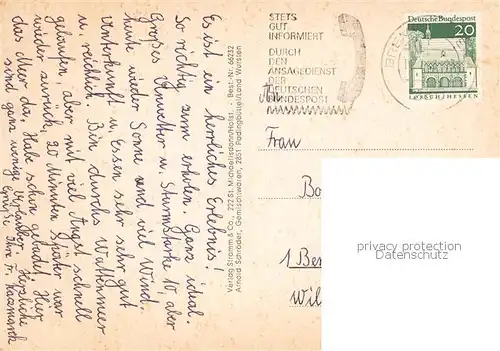 Es ist ein herrliches Erlebnis!
So richtig zum erholen. Ganz ideal.
Großes Unwetter u. Sturmstärke 10, aber
heute wieder Sonne und viel Wind.
Unterkunft u. Essen sehr sehr gut
u. reichlich. Bin durchs Wattenmeer
gelaufen, aber mit viel Angst schnell
wieder zurück, 20 Minuten später war
das Meer da. Habe schon gebadet. Hier
sind ganz wenige Urlauber. Herzliche
Grüße Ihre Fr. Kaczmarek
Verlag Stramm & Co., 222 St. Michaelisdonn/Holst. - Best.-Nr. 66232
Arnold Schröder, Gemischtwaren, 2851 Padingbüttel/Land Wursten
STETS
GUT
INFORMIERT
DURCH
DEN
ANSAGEDIENST
DER
DEUTSCHEN
BUNDESPOST
Deutsche Bundespost
20
LORSCH/HESSEN
An
Frau
1 Ber
Wil
privacy protection
Datenschutz